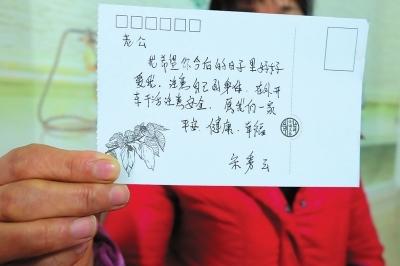 老公
我希望你今后的日子里好好
爱我，注意自己的身体，在外开
车干活注意安全，愿我们一家
平安，健康，幸福
宋秀云